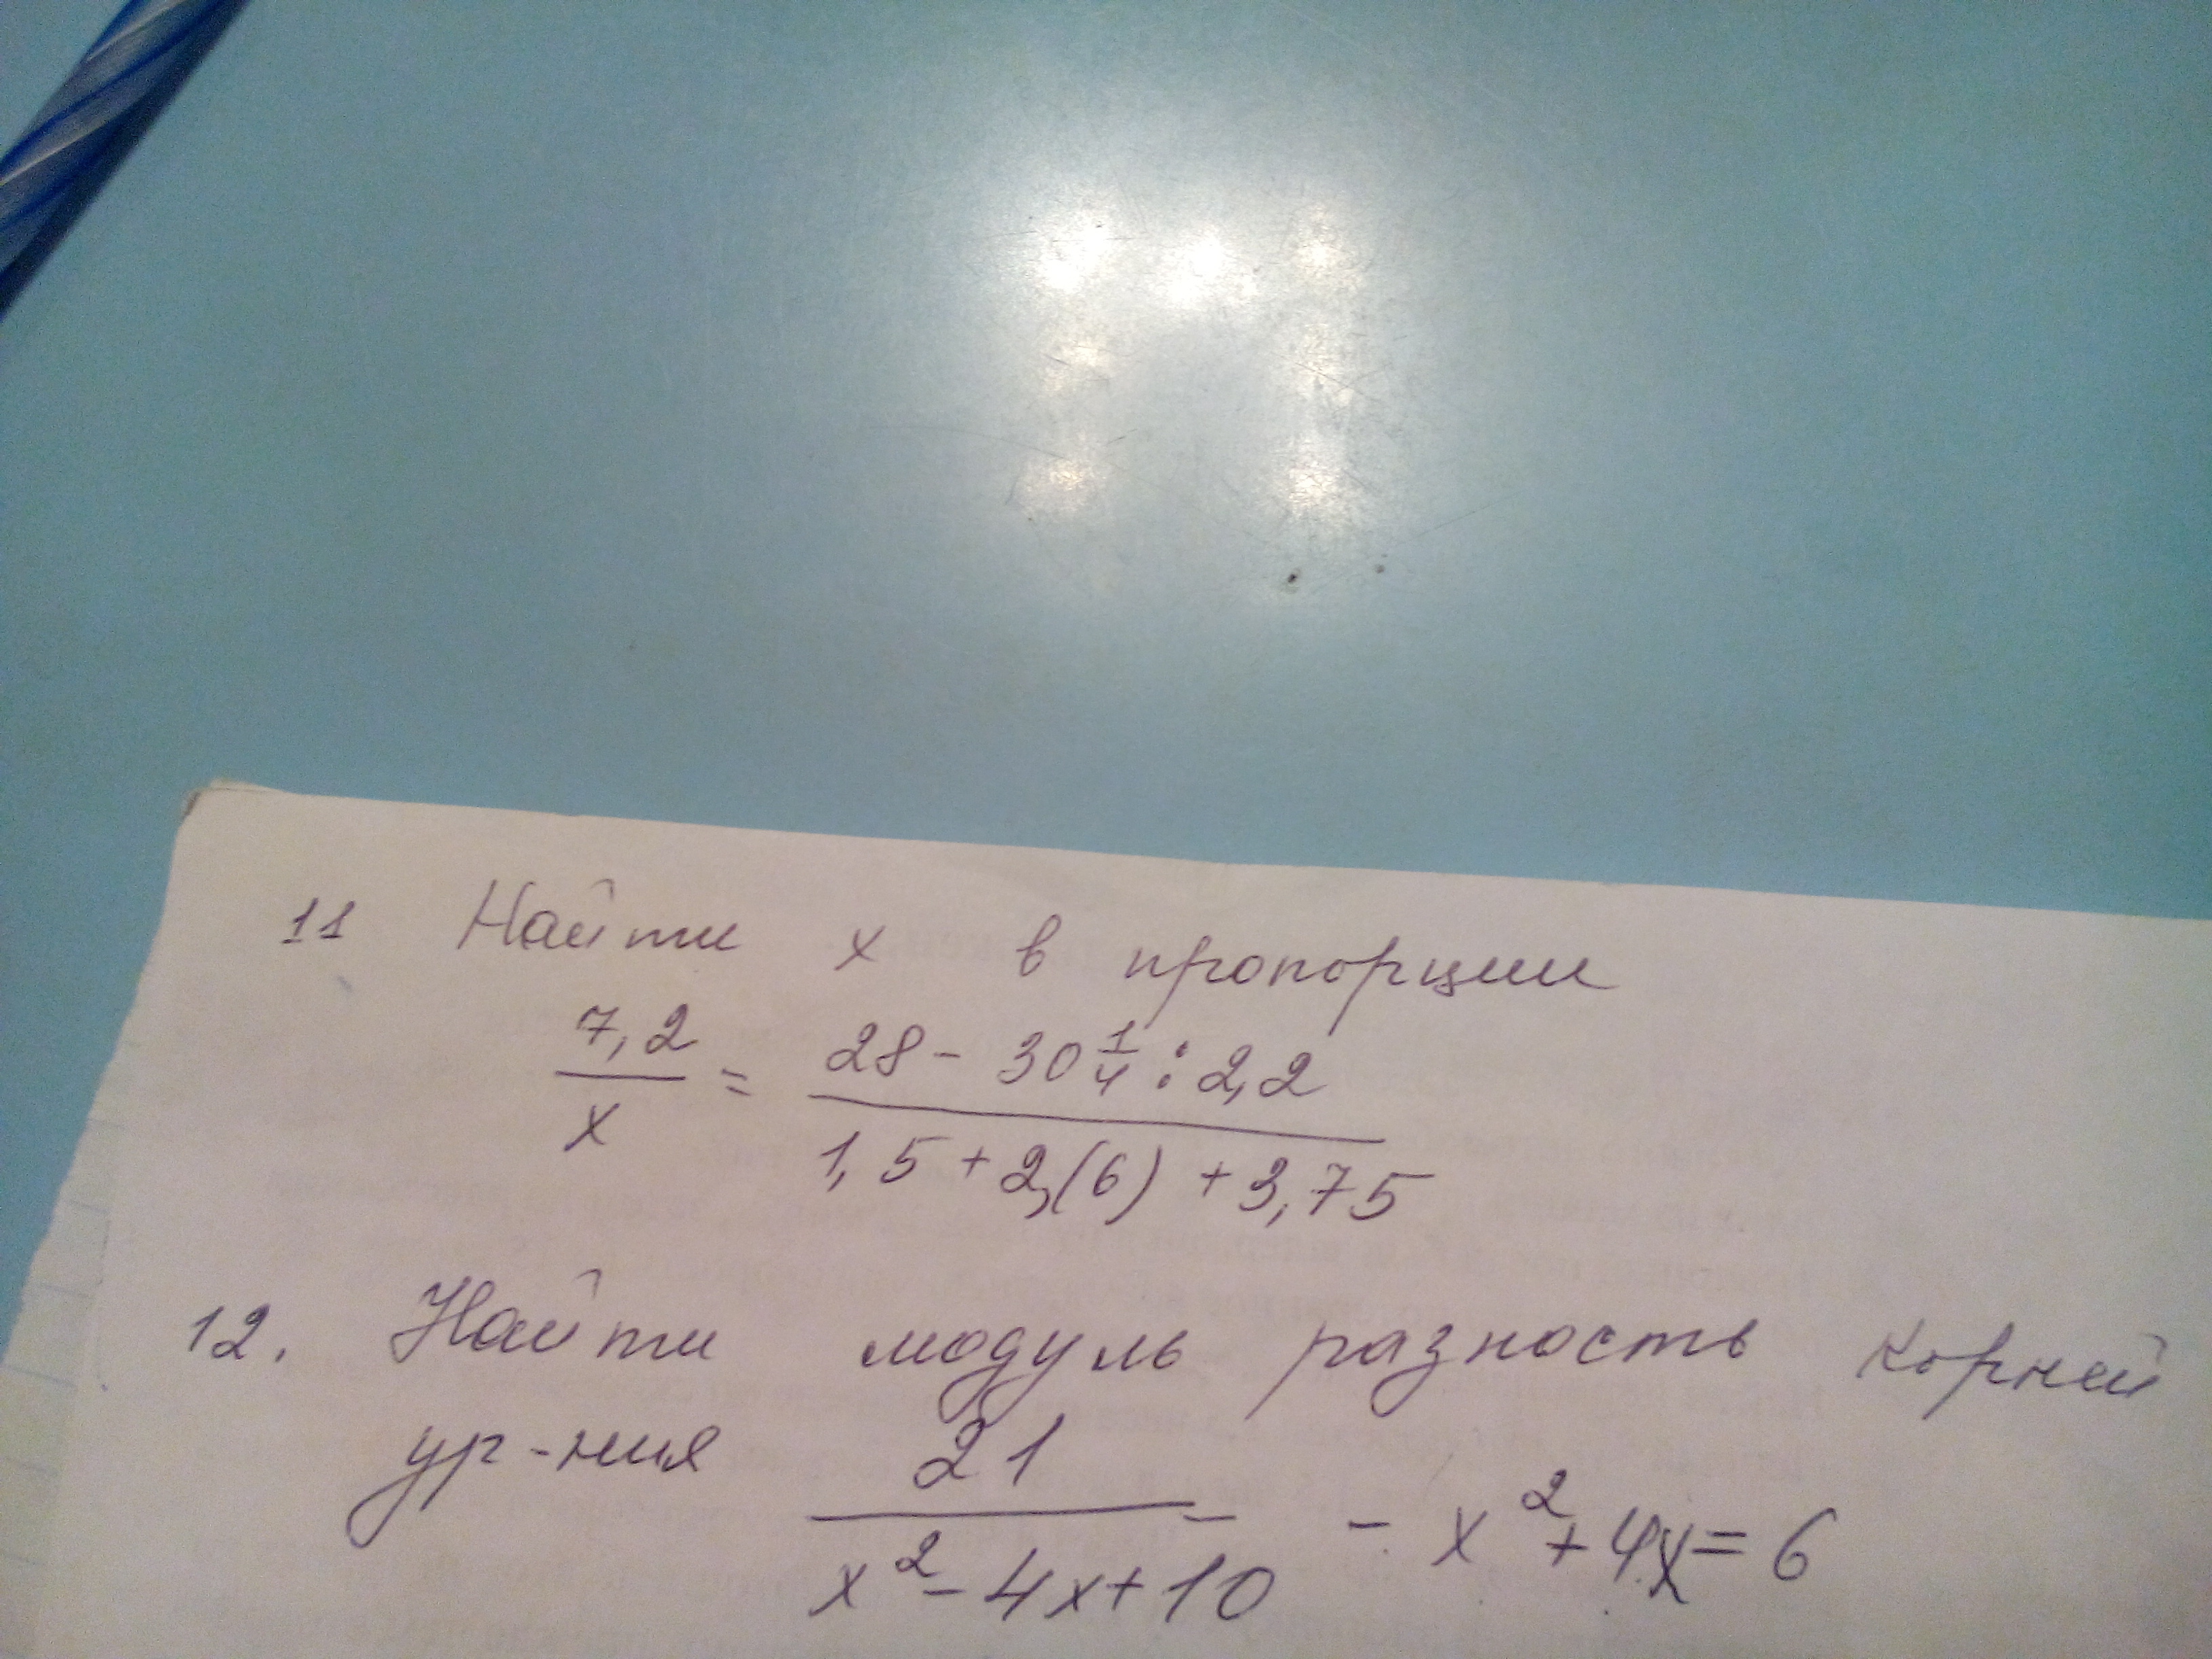 11 Найти x в пропорции
7,2/x = (28 - 30 1/4 : 2,2)/(1,5 + 2,(6) + 3,75)
12. Найти модуль разность корней
ур-ния 21/(x² - 4x + 10) - x² + 4x = 6